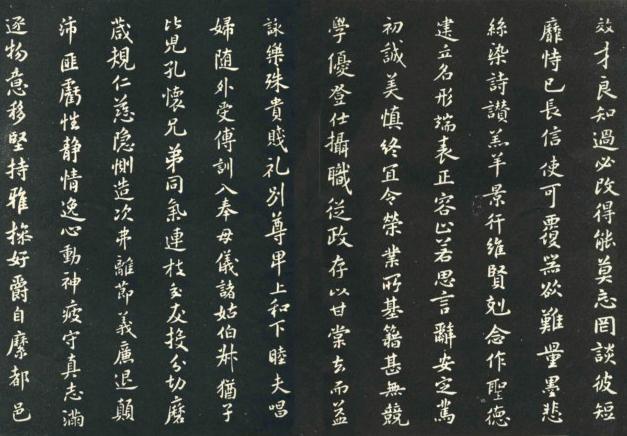 效才良知過必改得能莫忘罔談彼短
靡恃己長信使可覆器欲難量墨悲
絲染詩讚羔羊景行維賢剋念作聖德
建立名形端表正容止若思言辭安定篤
初誠美慎終宜令榮業所基籍甚無競
學優登仕攝職從政存以甘棠去而益
詠樂殊貴賤礼別尊卑上和下睦夫唱
婦随外受傅訓入奉母儀諸姑伯叔猶子
比兒孔懷兄弟同氣連枝交友投分切磨
箴規仁慈隐惻造次弗離節義廉退顛
沛匪虧性静情逸心動神疲守真志滿
逐物意移堅持雅操好爵自縻都邑